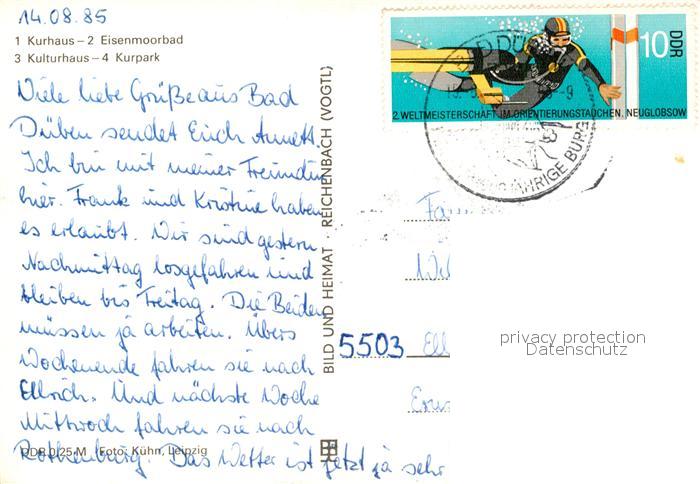 14.08.85
1 Kurhaus – 2 Eisenmoorbad
3 Kulturhaus – 4 Kurpark
Viele liebe Grüße aus Bad
Düben sendet Euch Annett.
Ich bin mit meiner Freundin
hier. Frank und Kristine haben
es erlaubt. Wir sind gestern
Nachmittag losgefahren und
bleiben bis Freitag. Die Beiden
müssen ja arbeiten. Übers
Wochenende fahren sie nach
Ellrich. Und nächste Woche
Mittwoch fahren sie nach
DDR 0,25 M (Foto: Kühn, Leipzig
Rothenburg. Das Wetter ist jetzt ja sehr
BILD UND HEIMAT · REICHENBACH (VOGTL)
10 DDR
2. WELTMEISTERSCHAFT IM ORIENTIERUNGSTAUCHEN, NEUGLOBSOW
BAD DÜ
JÄHRIGE BURG
Fam
5503 Ell
privacy protection
Datenschutz